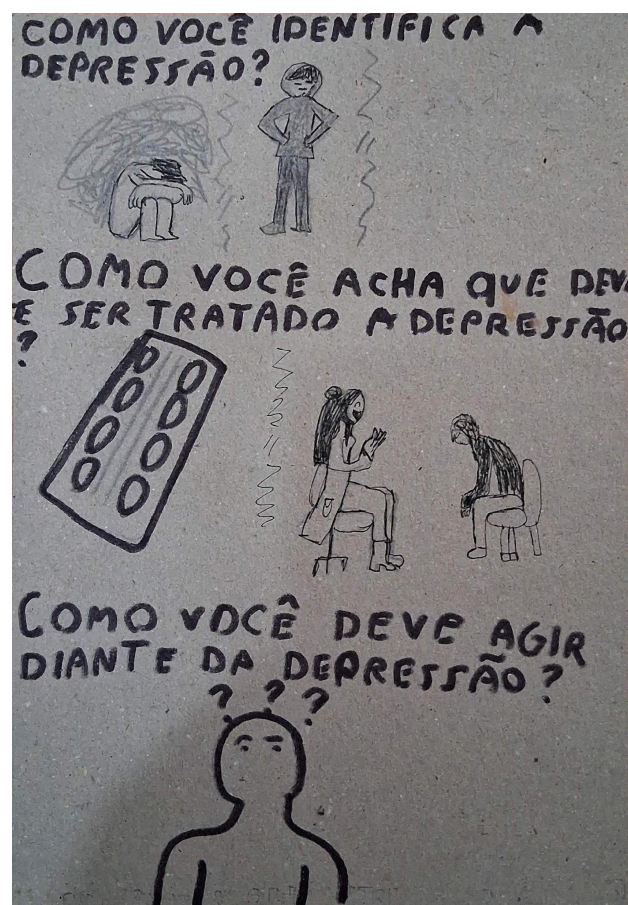 COMO VOCÊ IDENTIFICA A
DEPRESSÃO?
COMO VOCÊ ACHA QUE DEV
E SER TRATADO A DEPRESSÃO
?
COMO VOCÊ DEVE AGIR
DIANTE DA DEPRESSÃO?
? ? ?